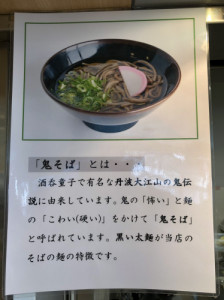 「鬼そば」とは・・・
酒呑童子で有名な丹波大江山の鬼伝
説に由来しています。鬼の「怖い」と麺
の「こわい(硬い)」をかけて「鬼そば」
と呼ばれています。黒い太麺が当店の
そばの麺の特徴です。